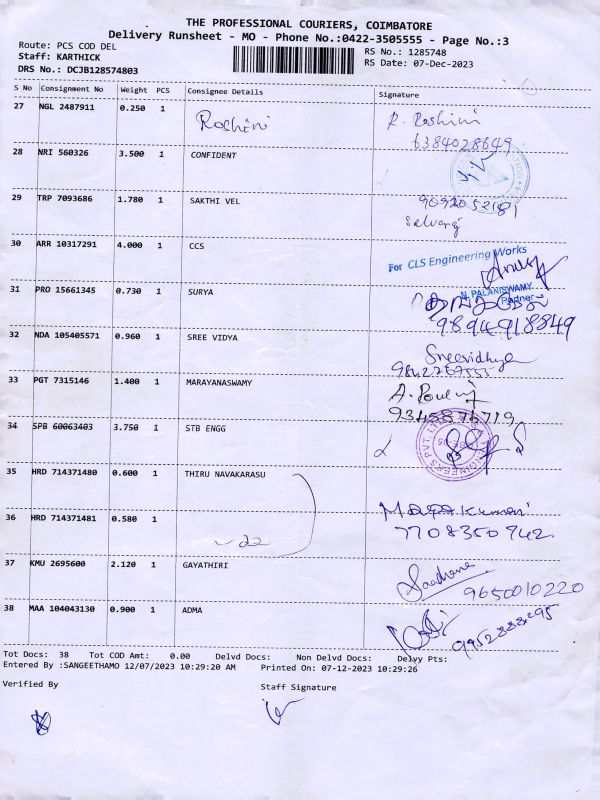 THE PROFESSIONAL COURIERS, COIMBATORE
Delivery Runsheet - MO - Phone No.:0422-3505555 - Page No.:3
Route: PCS COD DEL
RS No.: 1285748
Staff: KARTHICK
RS Date: 07-Dec-2023
DRS No.: DCJB128574803
S No Consignment No Weight PCS Consignee Details Signature
27 NGL 2487911 0.250 1 Roshini R. Roshini
6384028649
28 NRI 560326 3.500 1 CONFIDENT
29 TRP 7093686 1.780 1 SAKTHI VEL 9092052181
Selvaraj
30 ARR 10317291 4.000 1 CCS
For CLS Engineering Works
N. PALANISWAMY
Partner
31 PRO 15661345 0.730 1 SURYA
9894918849
32 NDA 105405571 0.960 1 SREE VIDYA Sreevidhya
33 PGT 7315146 1.400 1 MARAYANASWAMY
34 SPB 60063403 3.750 1 STB ENGG
35 HRD 714371480 0.600 1 THIRU NAVAKARASU
36 HRD 714371481 0.580 1
7708350942
37 KMU 2695600 2.120 1 GAYATHIRI Saadhana
9650010220
38 MAA 104043130 0.900 1 ADMA
Tot Docs: 38 Tot COD Amt: 0.00 Delvd Docs: Non Delvd Docs: Delvy Pts:
Entered By :SANGEETHAMO 12/07/2023 10:29:20 AM Printed On: 07-12-2023 10:29:26
Verified By
Staff Signature